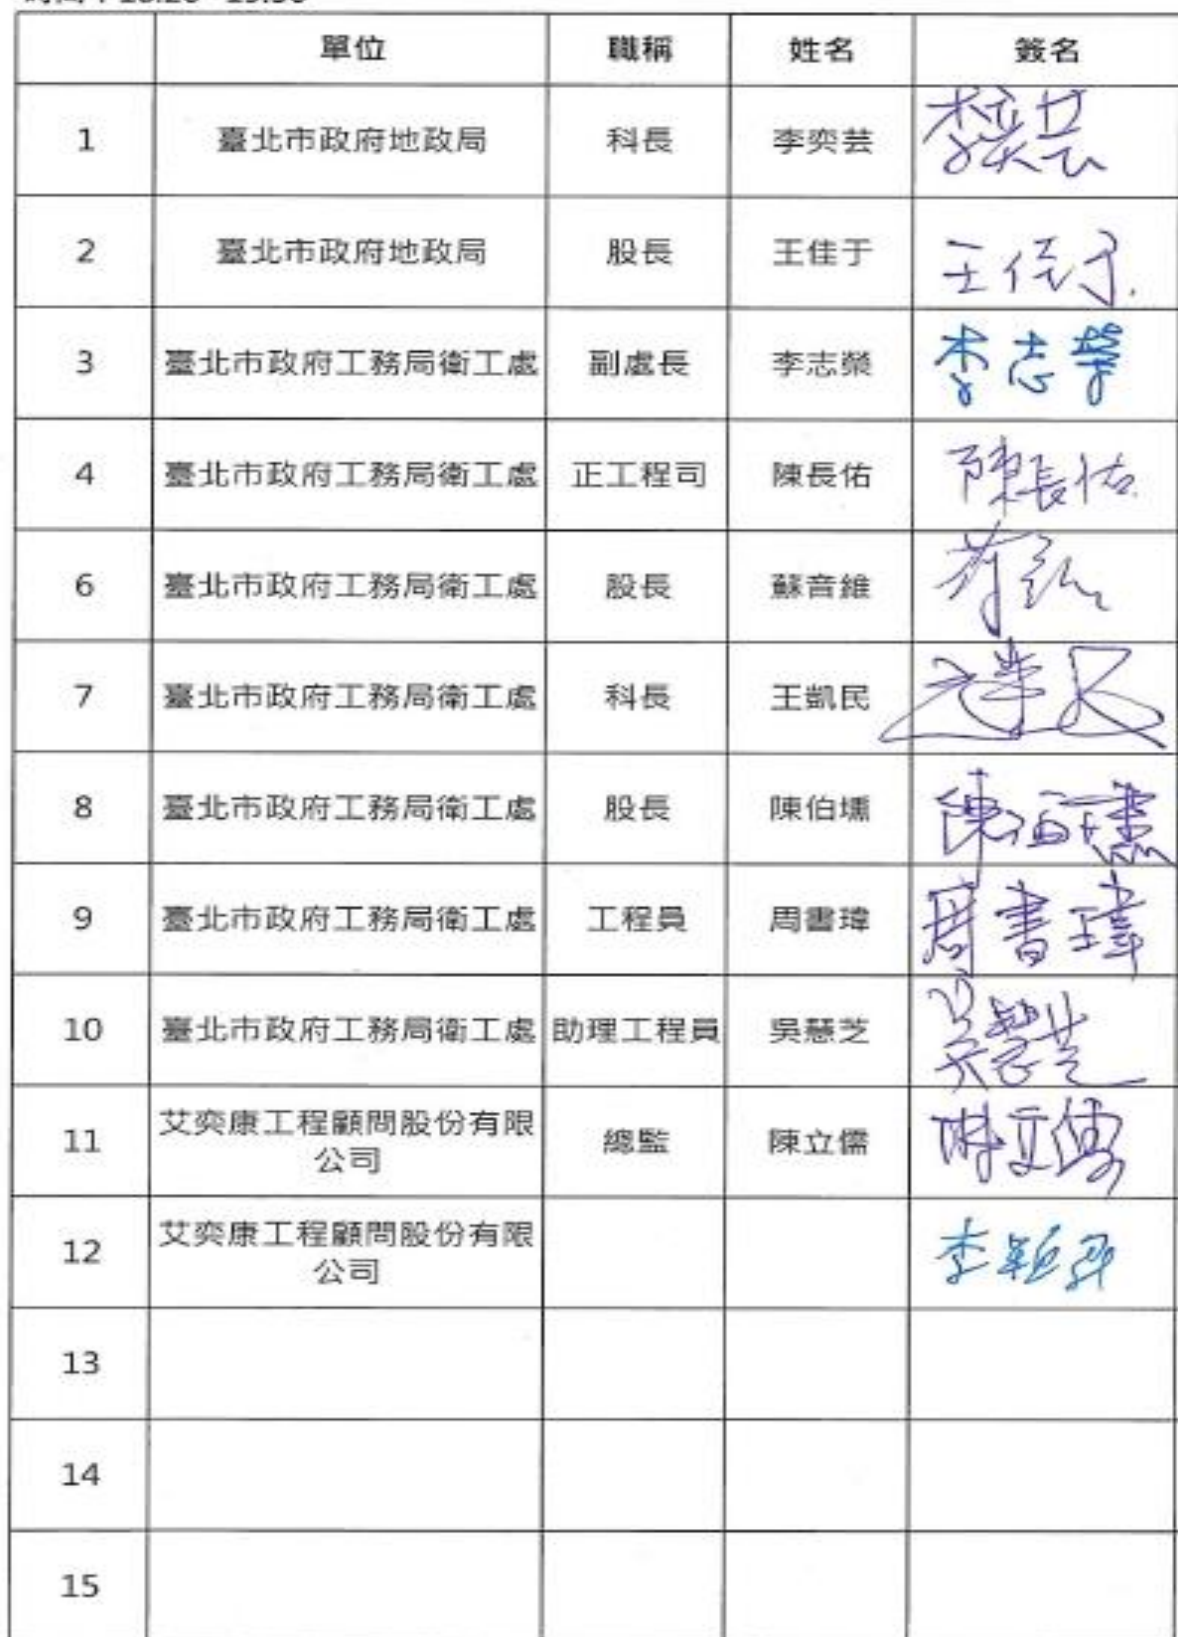 單位 職稱 姓名 簽名
1 臺北市政府地政局 科長 李奕芸 李奕芸
2 臺北市政府地政局 股長 王佳于 王佳于
3 臺北市政府工務局衛工處 副處長 李志榮 李志榮
4 臺北市政府工務局衛工處 正工程司 陳長佑 陳長佑
6 臺北市政府工務局衛工處 股長 蘇音維
7 臺北市政府工務局衛工處 科長 王凱民
8 臺北市政府工務局衛工處 股長 陳伯壎 陳伯壎
9 臺北市政府工務局衛工處 工程員 周書瑋 周書瑋
10 臺北市政府工務局衛工處 助理工程員 吳慧芝 吳慧芝
11 艾奕康工程顧問股份有限
公司 總監 陳立儒 陳立儒
12 艾奕康工程顧問股份有限
公司
13
14
15